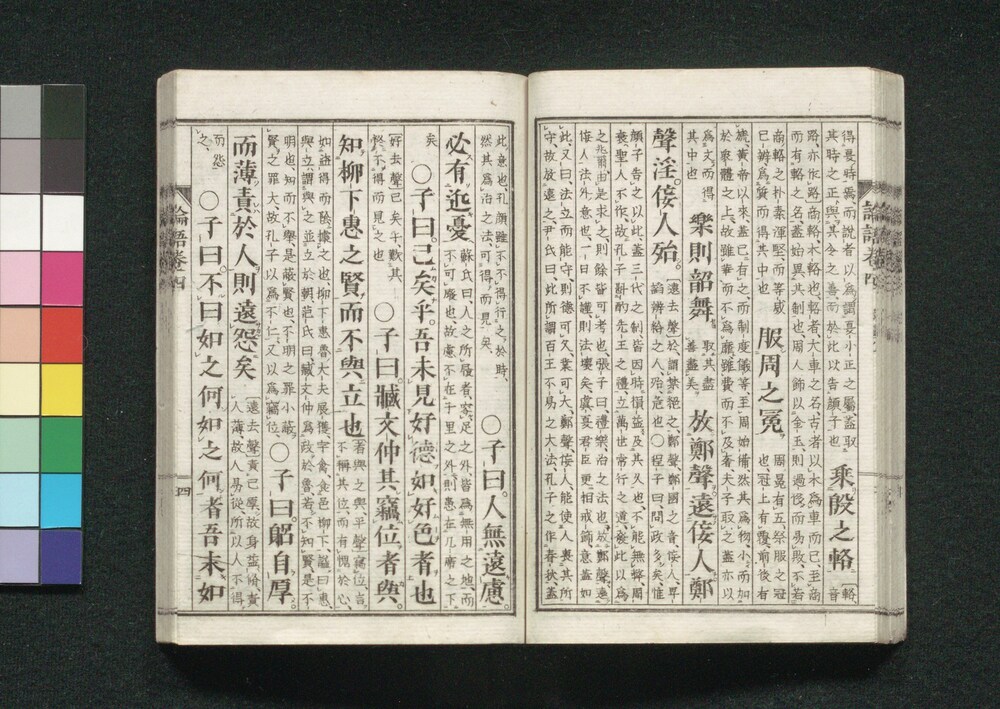 得夏時焉而說者以為謂夏小正之屬蓋取
其時之正與其令之善而於此以告顏子也
乘殷之輅
輅音
路亦作路商輅木輅也輅者大車之名古者以木為車而已至商
而有輅之名蓋始異其制也周人飾以金玉則過侈而易敗不若
商輅之朴素渾堅而等威
已辨為質而得其中也
服周之冕
周冕有五祭服之冠
也冠上有覆前後有
旒黃帝以來蓋已有之而制度儀等至周始備然其為物小而加
於衆體之上故雖華而不為靡雖費而不及奢夫子取之蓋亦以
為文而得
其中也
樂則韶舞
取其盡
善盡美
放鄭聲遠佞人鄭
聲淫佞人殆
遠去聲放謂禁絶之鄭聲鄭國之音佞人卑
諂辯給之人殆危也○程子曰問政多矣惟
顏子告之以此蓋三代之制皆因時損益及其久也不能無弊周
衰聖人不作故孔子斟酌先王之禮立萬世常行之道發此以為
之兆爾由是求之則餘皆可考也張子曰禮樂治之法也放鄭聲遠
佞人法外意也一日不謹則法壞矣虞夏君臣更相戒飭意蓋如
此又曰法立而能守則德可久業可大鄭聲佞人能使人喪其所
守故放遠之尹氏曰此所謂百王不易之大法孔子之作春秋蓋
論語卷四
此意也孔顏雖不得行之於時
然其為治之法可得而見矣
○子曰人無遠慮
必有近憂
蘇氏曰人之所履者容足之外皆為無用之地而
不可廢也故慮不在千里之外則患在几席之下
矣
○子曰已矣乎吾未見好德如好色者也
好去聲已矣乎歎其
終不得而見之也
○子曰臧文仲其竊位者與
知柳下惠之賢而不與立也
者與之與平聲竊位言
不稱其位而有愧於心
如盜得而陰據之也柳下惠魯大夫展獲字禽食邑柳下謚曰惠
與立謂與之並立於朝范氏曰臧文仲為政於魯若不知賢是不
明也知而不舉是蔽賢也不明之罪小蔽
賢之罪大故孔子以為不仁又以為竊位
○子曰躬自厚
而薄責於人則遠怨矣
遠去聲責己厚故身益脩責
人薄故人易從所以人不得
而怨
之
○子曰不曰如之何如之何者吾未如
論語卷四
四